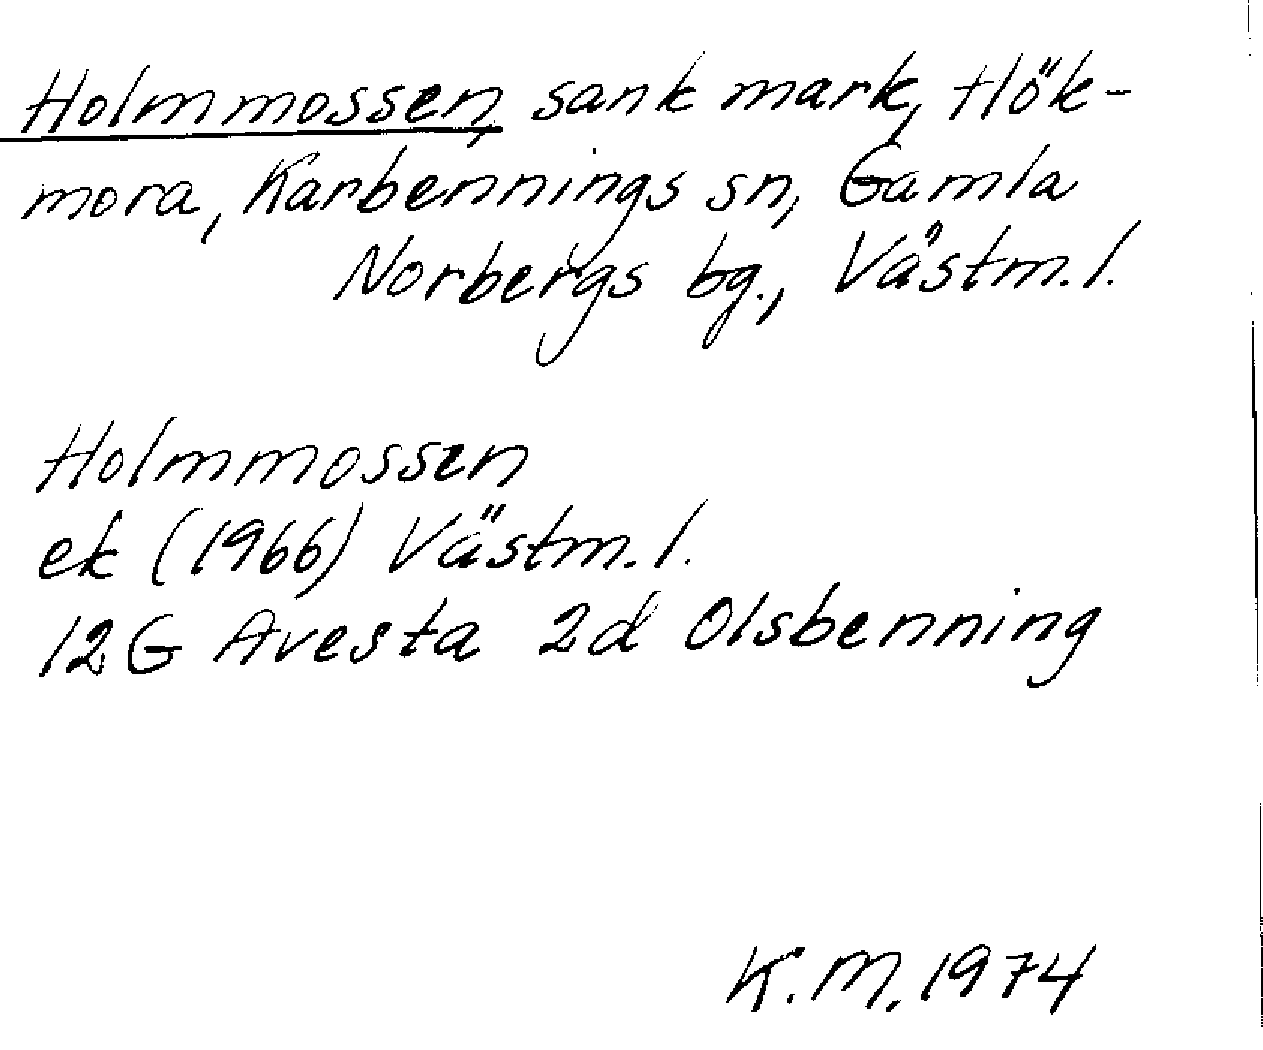 Holmmossen, sank mark, Hök-
mora, Karbennings sn, Gamla
Norbergs bg., Västm.l.
Holmmossen
ek (1966) Västm.l.
12G Avesta 2d Olsbenning
K.M. 1974